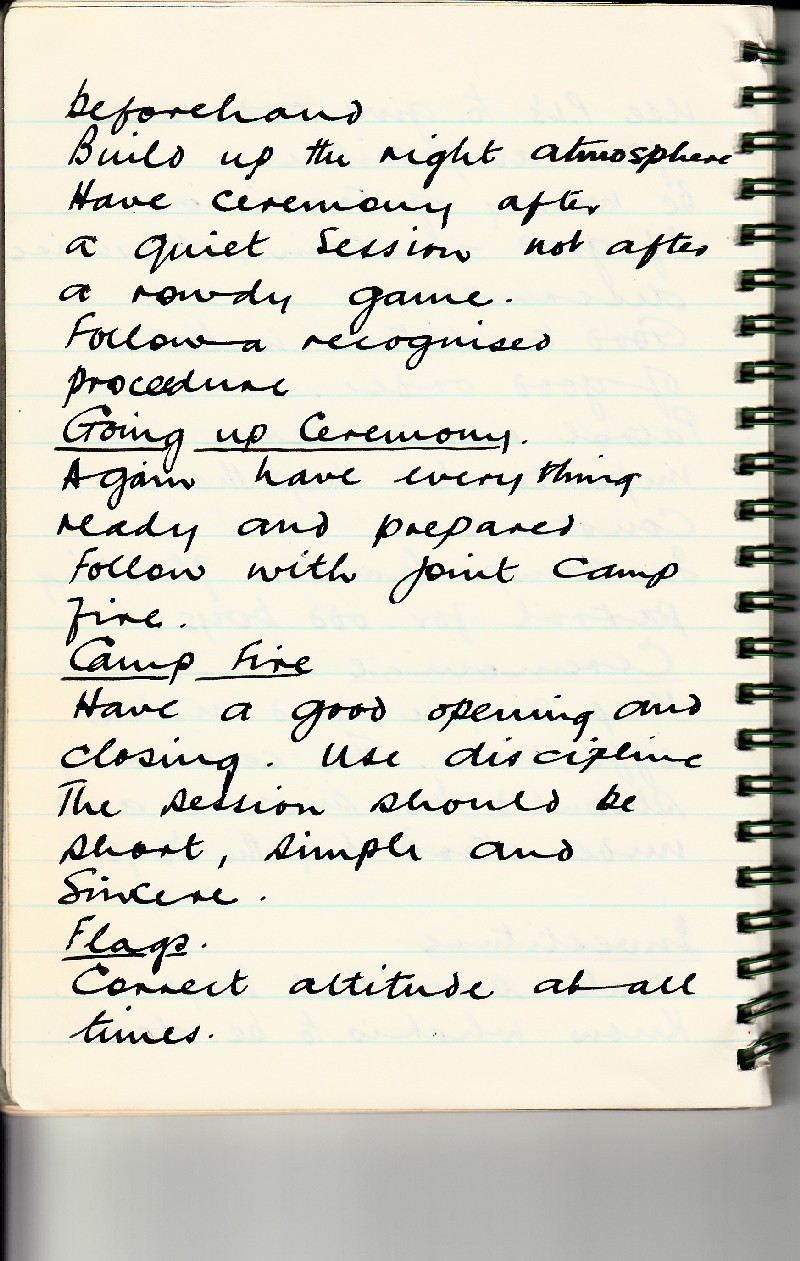 beforehand
Build up the right atmosphere
Have ceremony after
a quiet session not after
a rowdy game.
Follow a recognised
procedure
Going up Ceremony.
Again have everything
ready and prepared
Follow with joint camp
fire.
Camp Fire
Have a good opening and
closing. Use discipline
The session should be
short, simple and
sincere.
Flags.
Correct attitude at all
times.